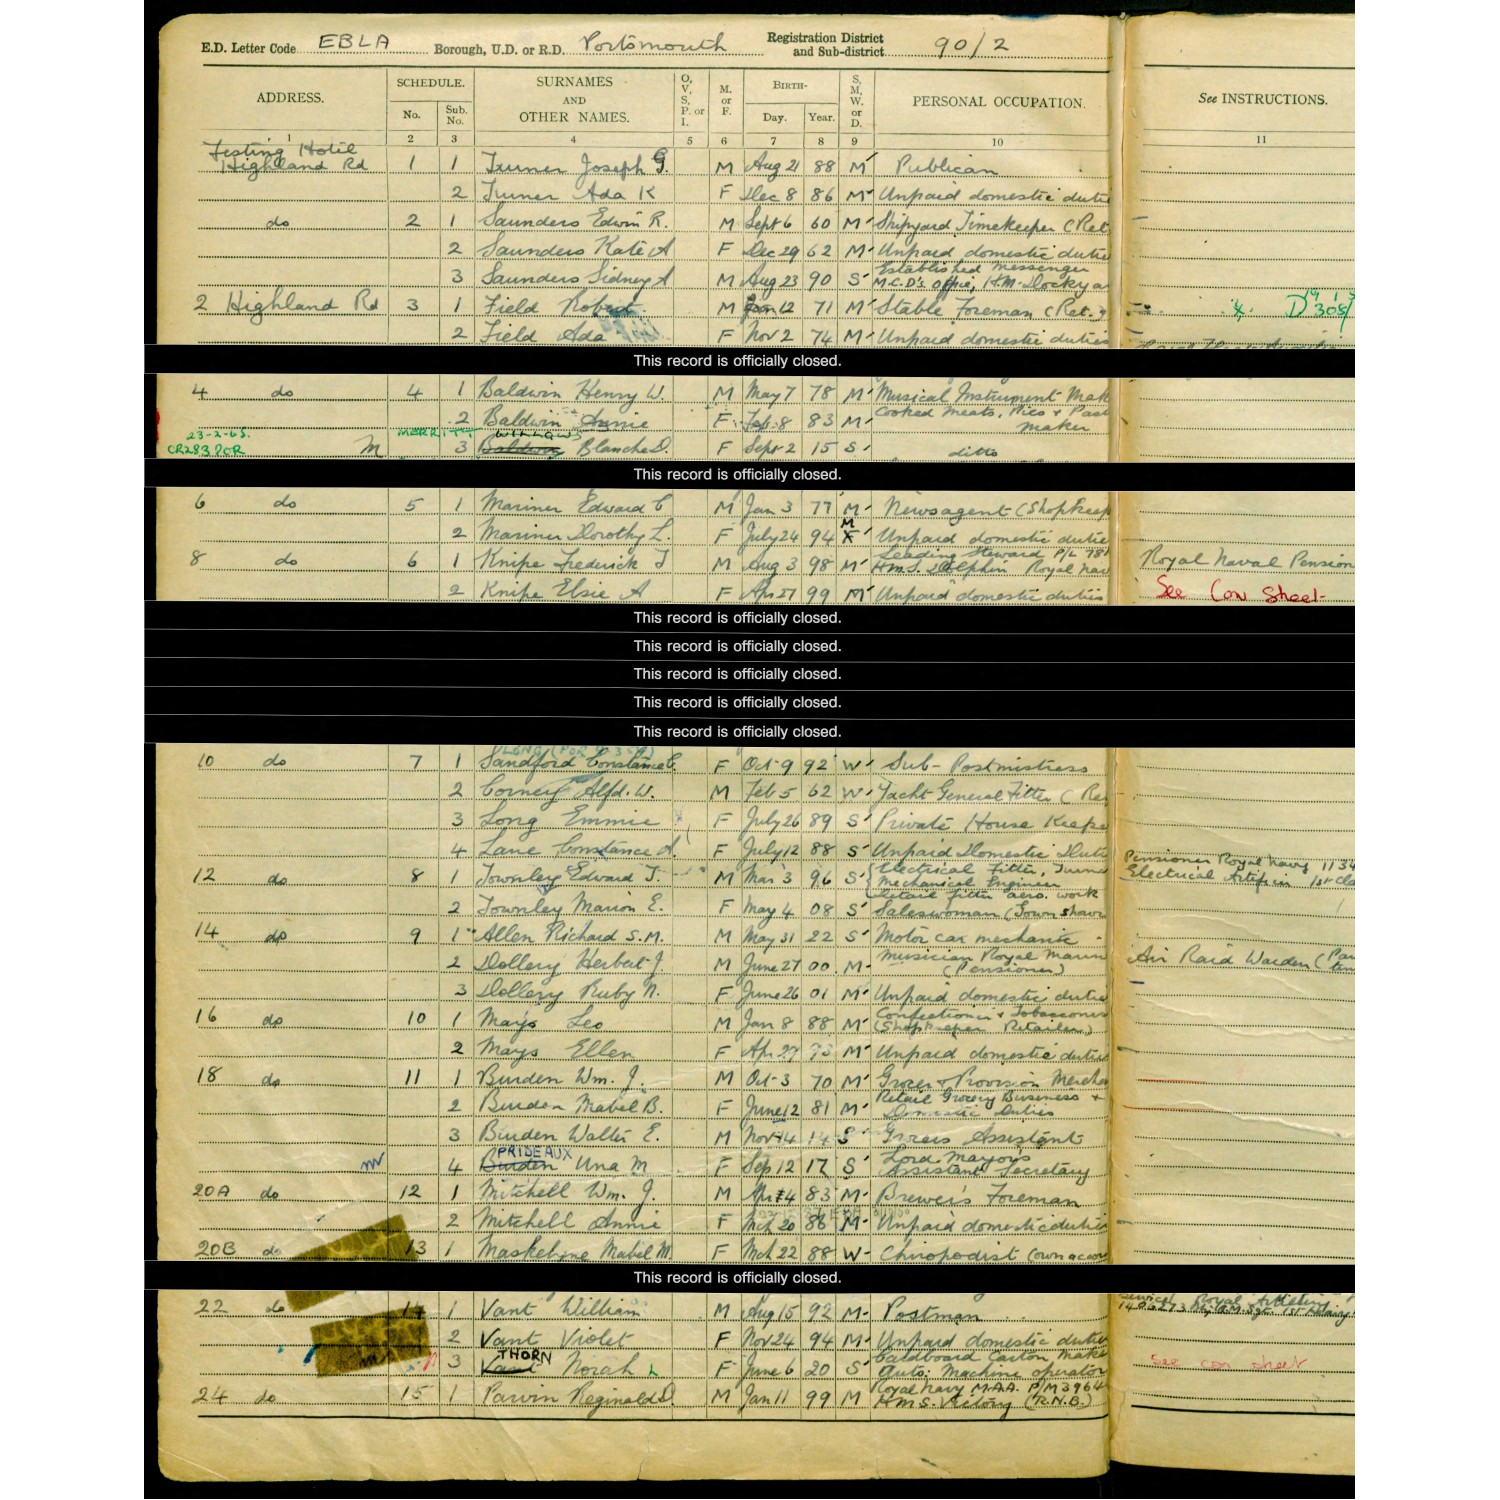 E.D. Letter Code EBLA Borough, U.D. or R.D. Portsmouth Registration District and Sub-district 90/2
ADDRESS. SCHEDULE. No. Sub. No. SURNAMES AND OTHER NAMES. O, V, S, P, or I. M. or F. BIRTH- Day. Year. S, M, W, or D. PERSONAL OCCUPATION. See INSTRUCTIONS.
1 2 3 4 5 6 7 8 9 10 11
Festing Hotel
Highland Rd 1 1 Turner Joseph G. M Aug 21 88 M Publican
2 Turner Ada K F Dec 8 86 M Unpaid domestic dutie
do 2 1 Saunders Edwin R. M Sept 6 60 M Shipyard Timekeeper (Ret
2 Saunders Kate A F Dec 29 62 M Unpaid domestic dutie
3 Saunders Sidney A M Aug 23 90 S Established Messenger
M.C.D's Office, H.M. Dockya
2 Highland Rd 3 1 Field Robert M Jan 12 71 M Stable Foreman (Ret.) D 305/
2 Field Ada F Nov 2 74 M Unpaid domestic duties
This record is officially closed.
4 do 4 1 Baldwin Henry W. M May 7 78 M Musical Instrument Mak
2 Baldwin Annie F Feb 8 83 M Cooked Meats, Pies & Past
maker
23-2-65. MERRITT WILLOWS
CR283 PCR M 3 Baldwin Blanche D. F Sept 2 15 S ditto
This record is officially closed.
6 do 5 1 Mariner Edward C M Jan 3 77 M Newsagent (Shopkeep
2 Mariner Dorothy L. F July 24 94 M Unpaid domestic dutie
8 do 6 1 Knipe Frederick J M Aug 3 98 M Leading Steward P/L 781
H.M.S. Dolphin Royal Nav Royal Naval Pension
2 Knipe Elsie A F Apr 27 99 M Unpaid domestic duties See Con Sheet
This record is officially closed.
This record is officially closed.
This record is officially closed.
This record is officially closed.
This record is officially closed.
10 do 7 1 Sandford Constance C. F Oct 9 92 W Sub-Postmistress
2 Corney Alfd. W. M Feb 5 62 W Yacht General Fitter (Re
3 Long Emmie F July 26 89 S Private House Keepe
4 Lane Constance A. F July 12 88 S Unpaid Domestic Duti
12 do 8 1 Townley Edward J. M Mar 3 96 S Electrical Fitter, Turne
Mechanical Engineer Pensioner Royal Navy 1134
Detail fitter aero. work Electrical Artificer 1st Cla
2 Townley Marion E. F May 4 08 S Saleswoman (Gown
14 do 9 1 Allen Richard S.M. M May 31 22 S Motor car mechanic
2 Dollery Herbert J. M June 27 00 M Musician Royal Marin
(Pensioner) Air Raid Warden (Par
3 Dollery Ruby N. F June 26 01 M Unpaid domestic dutie
16 do 10 1 Mays Leo M Jan 8 88 M Confectioner & Tobacconis
(Shopkeeper Retailer)
2 Mays Ellen F Apr 27 93 M Unpaid domestic duties
18 do 11 1 Burden Wm. J. M Oct 3 70 M Grocer & Provision Mercha
2 Burden Mabel B. F June 12 81 M Retail Grocery Business &
Domestic Duties
3 Burden Walter E. M Nov 14 14 S Grocers Assistant
PRIDEAUX
4 Burden Una M F Sep 12 17 S Lord Mayor's
Assistant Secretary
20A do 12 1 Mitchell Wm. J. M Apr 4 83 M Brewer's Foreman
2 Mitchell Annie F Mch 20 86 M Unpaid domestic duties
20B do 13 1 Maskelyne Mabel M. F Mch 22 88 W Chiropodist (own accou
This record is officially closed.
22 do 14 1 Vant William M Aug 15 92 M Postman Royal Artillery
2 Vant Violet F Nov 24 94 M Unpaid domestic dutie
THORN
3 Vant Norah L F June 6 20 S Cardboard Carton Make
Auto. Machine operator See con sheet
24 do 15 1 Parvin Reginald D. M Jan 11 99 M Royal Navy M.A.A. P/M 3964
H.M.S. Victory (R.N.B.)